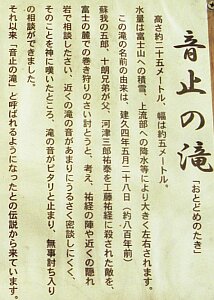 音止の滝
「おとどめのたき」
高さ約二十五メートル、幅は約五メートル。
水量は富士山への積雪、上流部への降水等により大きく左右されます。
この滝の名前の由来は、建久四年五月二十八日（約八百年前）
蘇我の五郎、十朗兄弟が父、河津三郎祐泰を工藤祐経に殺された敵を、
富士の麓での巻き狩りのさい討とうと、考え、祐経の陣や近くの隠れ
岩で相談したさい、近くの滝の音があまりにうるさく密談しにくく、
そのことを神に嘆いたところ、滝の音がピタリと止まり、無事討ち入り
の相談ができました。
それ以来、「音止の滝」と呼ばれるようになったとの伝説から来ています。